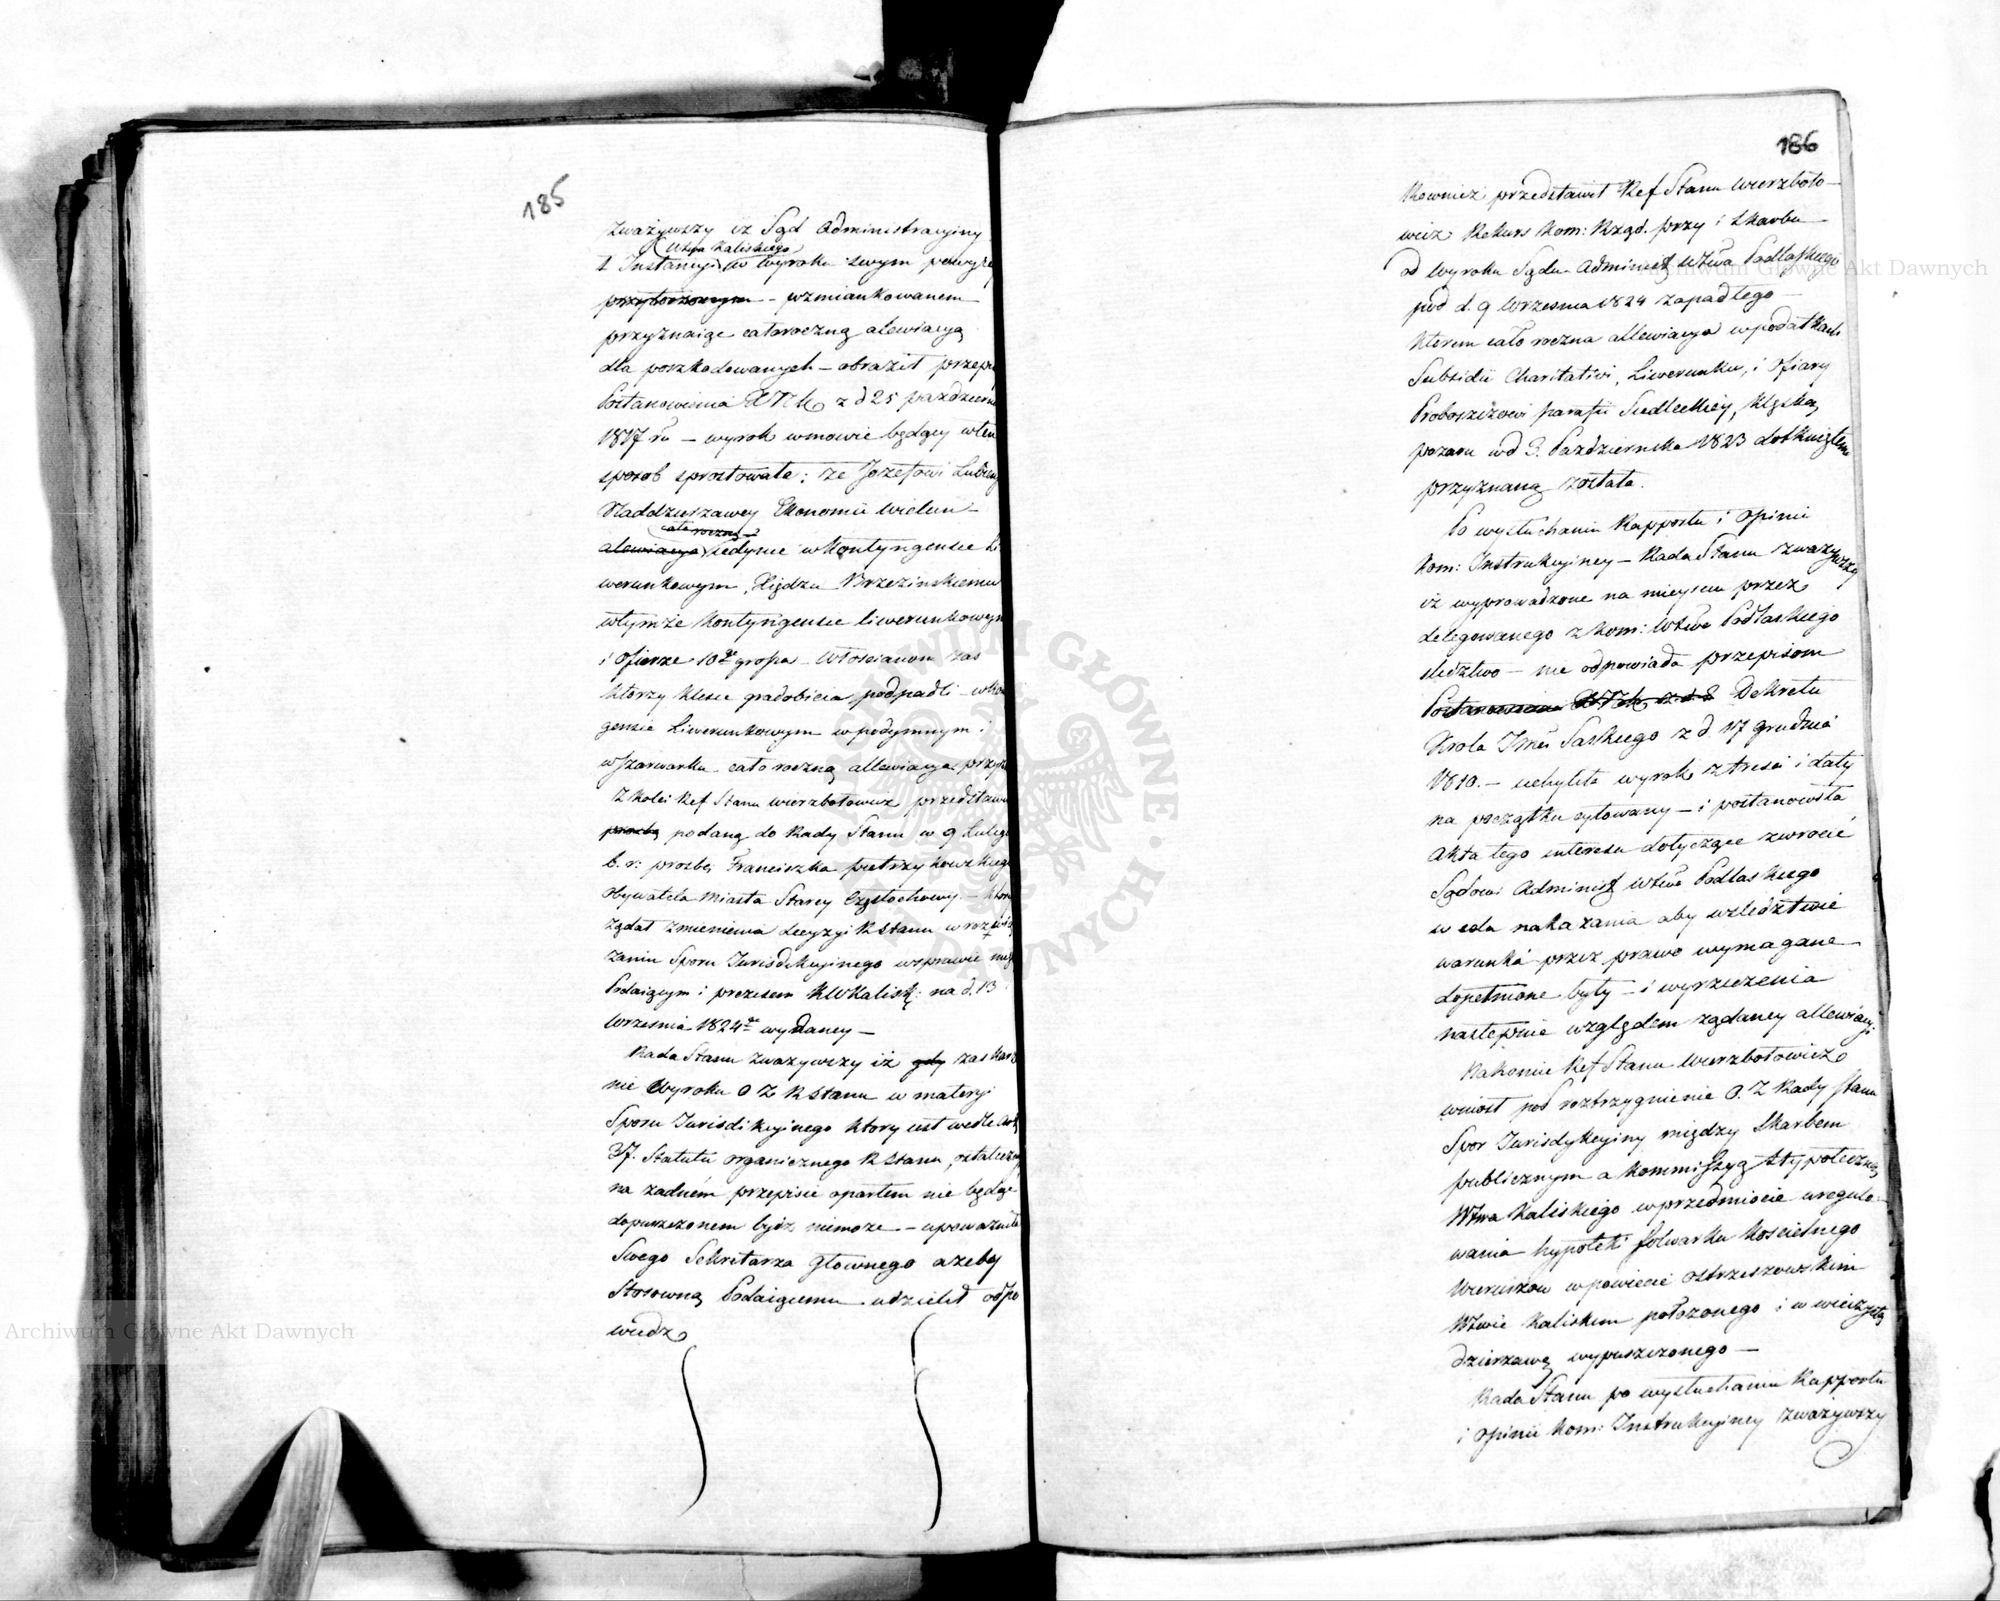 185
zważywszy iż Sąd Administracyjny
Wztwa Kaliskiego
1 Instancyi w wyroku swym powyże
przytoczonym – wzmiankowanem
przyznaiąc całoroczną alewiacyą
dla poszkodowanych – obraził przepis
Postanowienia z d 25 październi
1817 ru – wyrok w mowie będący w ten
sposob sprostowała: że Jozefowi
Naddzierżawcy Ekonomii Wielun –
cało roczną
alewiacya jedynie w Kontyngensie Li
werunkowym, Xiędzu Brzezinskiemu
w tymże Kontyngensie liwerunkowym
i Ofierze 10go grosza – Włoscianom zas
ktorzy klesce gradobicia podpadli – w Kon
gensie Liwerunkowym w podymnym i
w Szarwarku cało roczną allewiacya przyzn
Z kolei Ref Stanu Wierzbołowicz przedstawił
prozbę podaną do Rady Stanu w 9 Lutego
b. r: prozbę Franciszka Pietrzykowskiego
Obywatela Miasta Starey Częstochowy – ktory
żądał zmienienia decyzyi R Stanu w rozwią
zaniu Sporu Jurisdikcyjnego w sprawie międ
Podaiącym i prezesem KWKalisk: na d. 13
Września 1824 r wydaney –
Rada Stanu zważywszy iż gdy zaskarże
nie Wyroku O Z R Stanu w materyi
Sporu Jurisdikcyjnego ktory iest wedle Art
37. Statutu organicznego R Stanu, ostateczny
na żadném przepisie opartem nie będąc
dopuszczonem bydź niemoże – upoważniła
Swego Sekretarza Głownego ażeby
Stosowną Podaiącemu udzielił odpo
wiedz
186
Rownież przedstawił Ref Stanu Wierzboło –
wicz Rekurs Kom: Rząd. przy: i Skarbu
od Wyroku Sądu Administ Wztwa Podlaskiego
pod d. 9 Września 1824 zapadłego –
ktorem cało roczna allewiacya w podatkach
Subsidii Charitativi, Liwerunku, i Ofiary
Proboszczowi parafii Siedleckiey, klęską
pożaru w d 3. Pazdziernika 1823 dotkniętemu
przyznaną została.
Po wysłuchaniu Rapportu i Opinii
Kom: Instrukcyjney – Rada Stanu zważywszy
iż wyprowadzone na mieyscu przez
delegowanego z Kom: Wztwa Podlaskiego
sledztwo – nie odpowiada przepisom
Postanowienia Dekretu
Krola Jmci Saskiego z d 17 Grudnia
1810. – uchyliła wyrok z tresci i daty
na początku cytowany – i postanowiła
Akta tego interesu dotyczące zwrocić
Sądowi Administ Wztwa Podlaskiego
w celu nakazania aby w sledztwie
warunki przez prawo wymagane
dopełnione były – i wyrzeczenia
następnie względem żądaney allewiacyi
Nakoniec Ref Stanu Wierzbołowicz
wniosł pod roztrzygnienie O. Z Rady Stanu
Spor Jurisdykcyjny między Skarbem
publicznym a Kommissyą Hypoteczną
Wztwa Kaliskiego w przedmiocie uregulo –
wania hypoteki folwarku Koscielnego
Wieruszow w powiecie Ostrzeszowskim
Wztwie Kaliskiem położonego i w wieczystą
dzierżawę wypuszczonego –
Rada Stanu po wysłuchaniu Rapportu
i Opinii Kom: Instrukcyjney zważywszy
Archiwum Główne Akt Dawnych
Archiwum Główne Akt Dawnych
ARCHIWUM GŁÓWNE AKT DAWNYCH